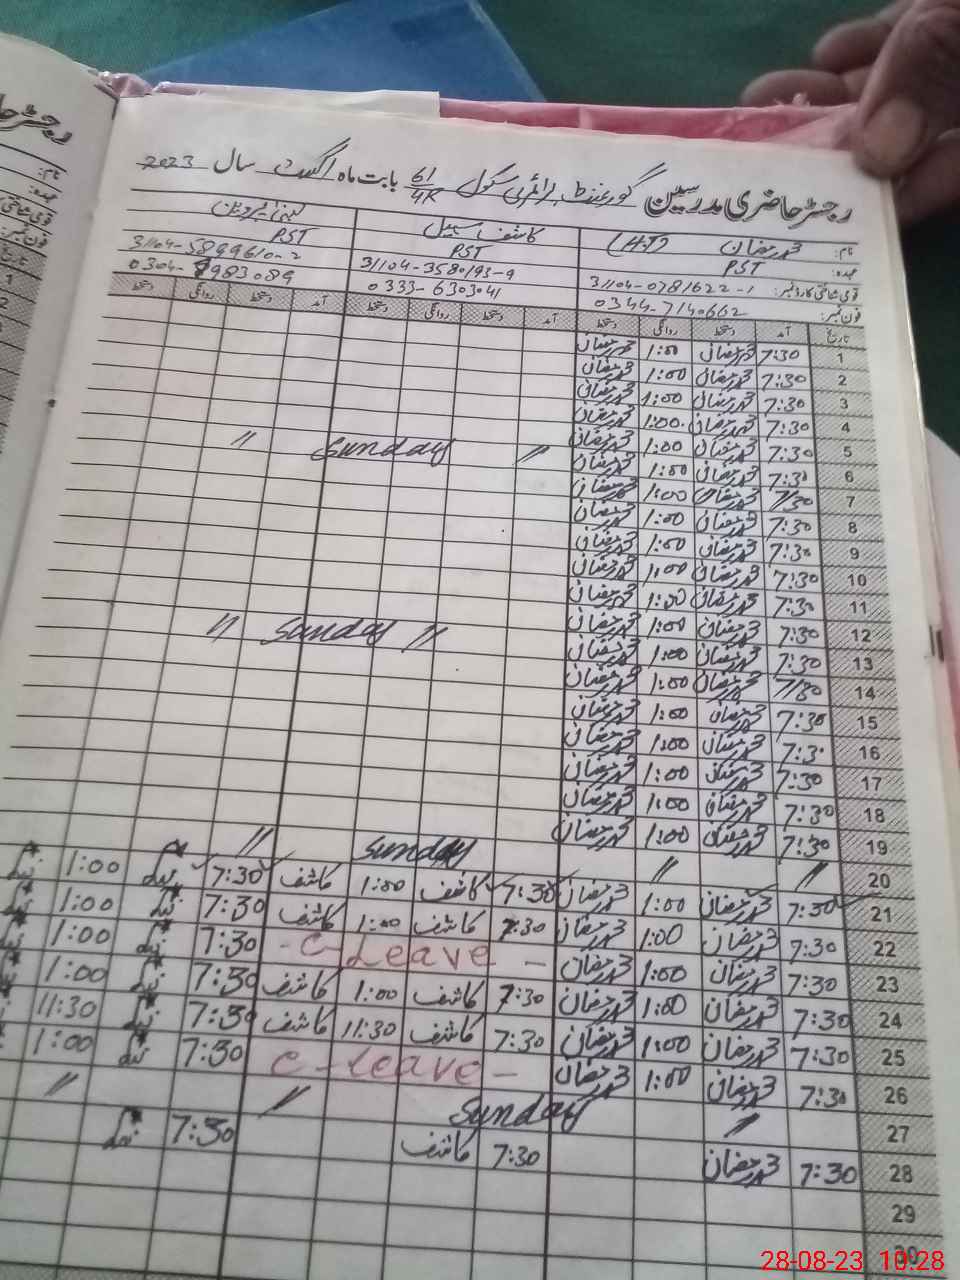 رجسٹر حاضری مدرسین گورنمنٹ پرائمری سکول 61/4R بابت ماہ اگست سال 2023
نام: محمد رمضان (H.T) کاشف سہیل
عہدہ: PST PST PST
قومی شناختی کارڈ نمبر: 31104-0781622-1 31104-3580193-9 31104-5899610-2
فون نمبر: 0344-7140662 0333-6303041 0304-8983089
تاریخ آمد دستخط روانگی دستخط آمد دستخط روانگی دستخط آمد دستخط روانگی دستخط
1 7:30 محمد رمضان 1:00 محمد رمضان
2 7:30 محمد رمضان 1:00 محمد رمضان
3 7:30 محمد رمضان 1:00 محمد رمضان
4 7:30 محمد رمضان 1:00 محمد رمضان
5 7:30 محمد رمضان 1:00 محمد رمضان
6 7:30 محمد رمضان 1:00 محمد رمضان " Sunday "
7 7/30 محمد رمضان 1:00 محمد رمضان
8 7:30 محمد رمضان 1:00 محمد رمضان
9 7:30 محمد رمضان 1:00 محمد رمضان
10 7:30 محمد رمضان 1:00 محمد رمضان
11 7:30 محمد رمضان 1:00 محمد رمضان
12 7:30 محمد رمضان 1:00 محمد رمضان
13 7:30 محمد رمضان 1:00 محمد رمضان " Sunday "
14 7/30 محمد رمضان 1:00 محمد رمضان
15 7:30 محمد رمضان 1:00 محمد رمضان
16 7:30 محمد رمضان 1:00 محمد رمضان
17 7:30 محمد رمضان 1:00 محمد رمضان
18 7:30 محمد رمضان 1:00 محمد رمضان
19 7:30 محمد رمضان 1:00 محمد رمضان
20 " " Sunday "
21 7:30 محمد رمضان 1:00 محمد رمضان 7:30 کاشف 1:00 کاشف 7:30 1:00
22 7:30 محمد رمضان 1:00 محمد رمضان 7:30 کاشف 1:00 کاشف 7:30 1:00
23 7:30 محمد رمضان 1:00 محمد رمضان - C-Leave - 7:30 1:00
24 7:30 محمد رمضان 1:00 محمد رمضان 7:30 کاشف 1:00 کاشف 7:30 1:00
25 7:30 محمد رمضان 1:00 محمد رمضان 7:30 کاشف 11:30 کاشف 7:30 11:30
26 7:30 محمد رمضان 1:00 محمد رمضان C-Leave - 7:30 1:00
27 " Sunday " "
28 7:30 محمد رمضان 7:30 کاشف 7:30
29
30
28-08-23 10:28